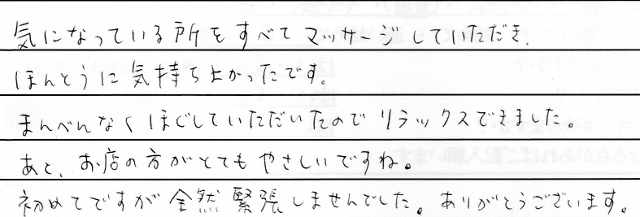 気になっている所をすべてマッサージしていただき、
ほんとうに気持ち上かったです。
まんべんなくほぐしていただいたのでリラックスできました。
あと、お店の方がとてもやさしいですね。
初めてですが全然緊張しませんでした。ありがとうございます。